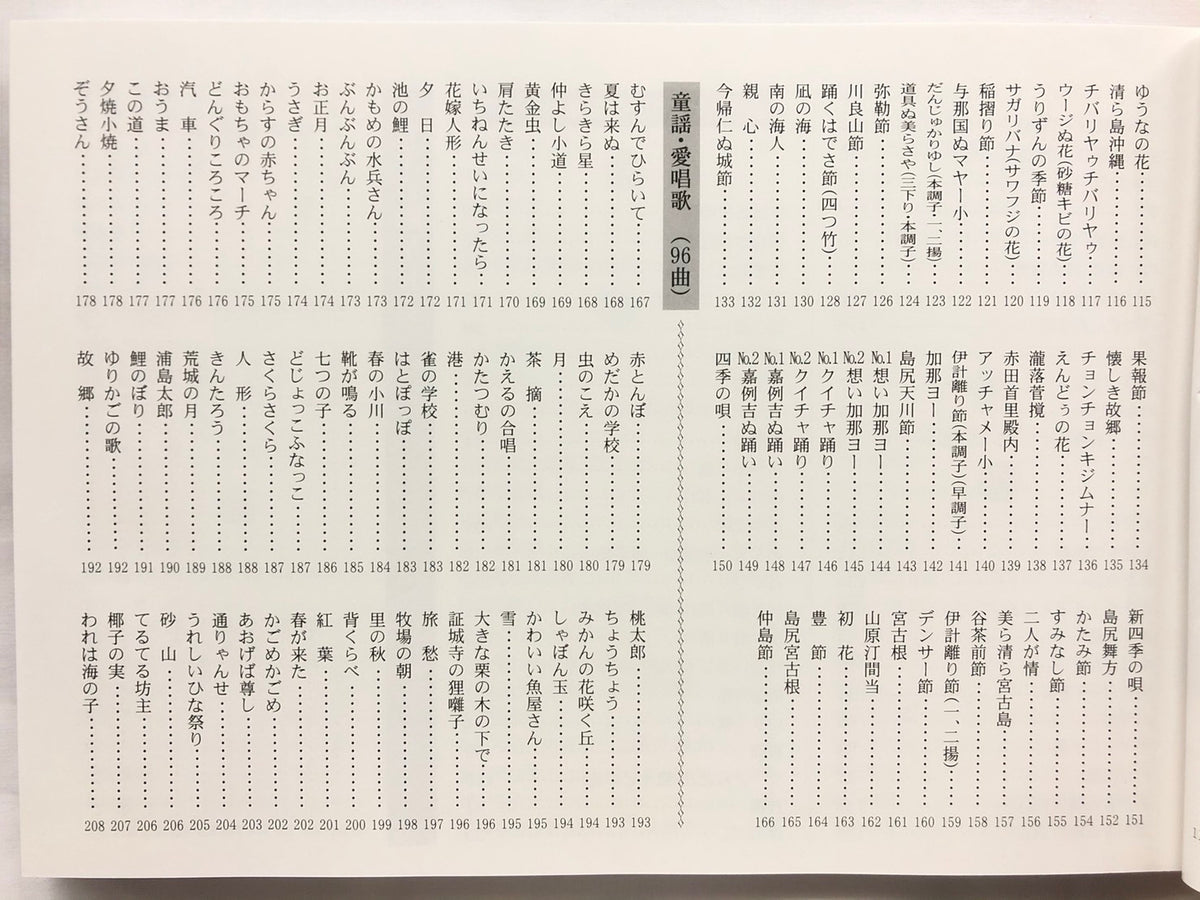 ゆうなの花……115
清ら島沖縄……116
チバリヤゥチバリヤゥ……117
ウージぬ花(砂糖キビの花)……118
うりずんの季節……119
サガリバナ(サワフジの花)……120
稲摺り節……121
与那国ぬマヤー小……122
だんじゅかりゆし(本調子一、二揚)……123
道具ぬ美らさや(三下り・本調子)……124
弥勒節……126
川良山節……127
踊くはでさ節(四つ竹)……128
凪の海……130
南の海人……131
親　心……132
今帰仁ぬ城節……133
果報節……134
懐しき故郷……135
チョンチョンキジムナー……136
えんどぅの花……137
瀧落菅撹……138
赤田首里殿内……139
アッチャメー小……140
伊計離り節(本調子)(早調子)……141
加那ヨー……142
島尻天川節……143
№1想い加那ヨー……144
№2想い加那ヨー……145
№1クイチャ踊り……146
№2クイチャ踊り……147
№1嘉例吉ぬ踊い……148
№2嘉例吉ぬ踊い……149
四季の唄……150
新四季の唄……151
島尻舞方……152
かたみ節……154
すみなし節……155
二人が情……156
美ら清ら宮古島……157
谷茶前節……158
伊計離り節(一、二揚)……159
デンサー節……160
宮古根……161
山原汀間当……162
初　花……163
豊　節……164
島尻宮古根……165
仲島節……166
童謡・愛唱歌　(96曲)
むすんでひらいて……167
夏は来ぬ……168
きらきら星……168
仲よし小道……169
黄金虫……169
肩たたき……170
いちねんせいになったら……171
花嫁人形……171
夕　日……172
池の鯉……172
かもめの水兵さん……173
ぶんぶんぶん……173
お正月……174
うさぎ……174
からすの赤ちゃん……175
おもちゃのマーチ……175
どんぐりころころ……176
汽　車……176
おうま……177
この道……177
夕焼小焼……178
ぞうさん……178
赤とんぼ……179
めだかの学校……179
虫のこえ……180
月……180
茶　摘……181
かえるの合唱……181
かたつむり……182
港……182
雀の学校……183
はとぽっぽ……183
春の小川……184
靴が鳴る……185
七つの子……186
どじょっこふなっこ……187
さくらさくら……187
人　形……188
きんたろう……188
荒城の月……189
浦島太郎……190
鯉のぼり……191
ゆりかごの歌……192
故　郷……192
桃太郎……193
ちょうちょう……193
みかんの花咲く丘……194
しゃぼん玉……194
かわいい魚屋さん……195
雪……195
大きな栗の木の下で……196
証城寺の狸囃子……196
旅　愁……197
牧場の朝……198
里の秋……199
背くらべ……200
紅　葉……201
春が来た……202
かごめかごめ……202
あおげば尊し……203
通りゃんせ……204
うれしいひな祭り……205
砂　山……206
てるてる坊主……206
椰子の実……207
われは海の子……208